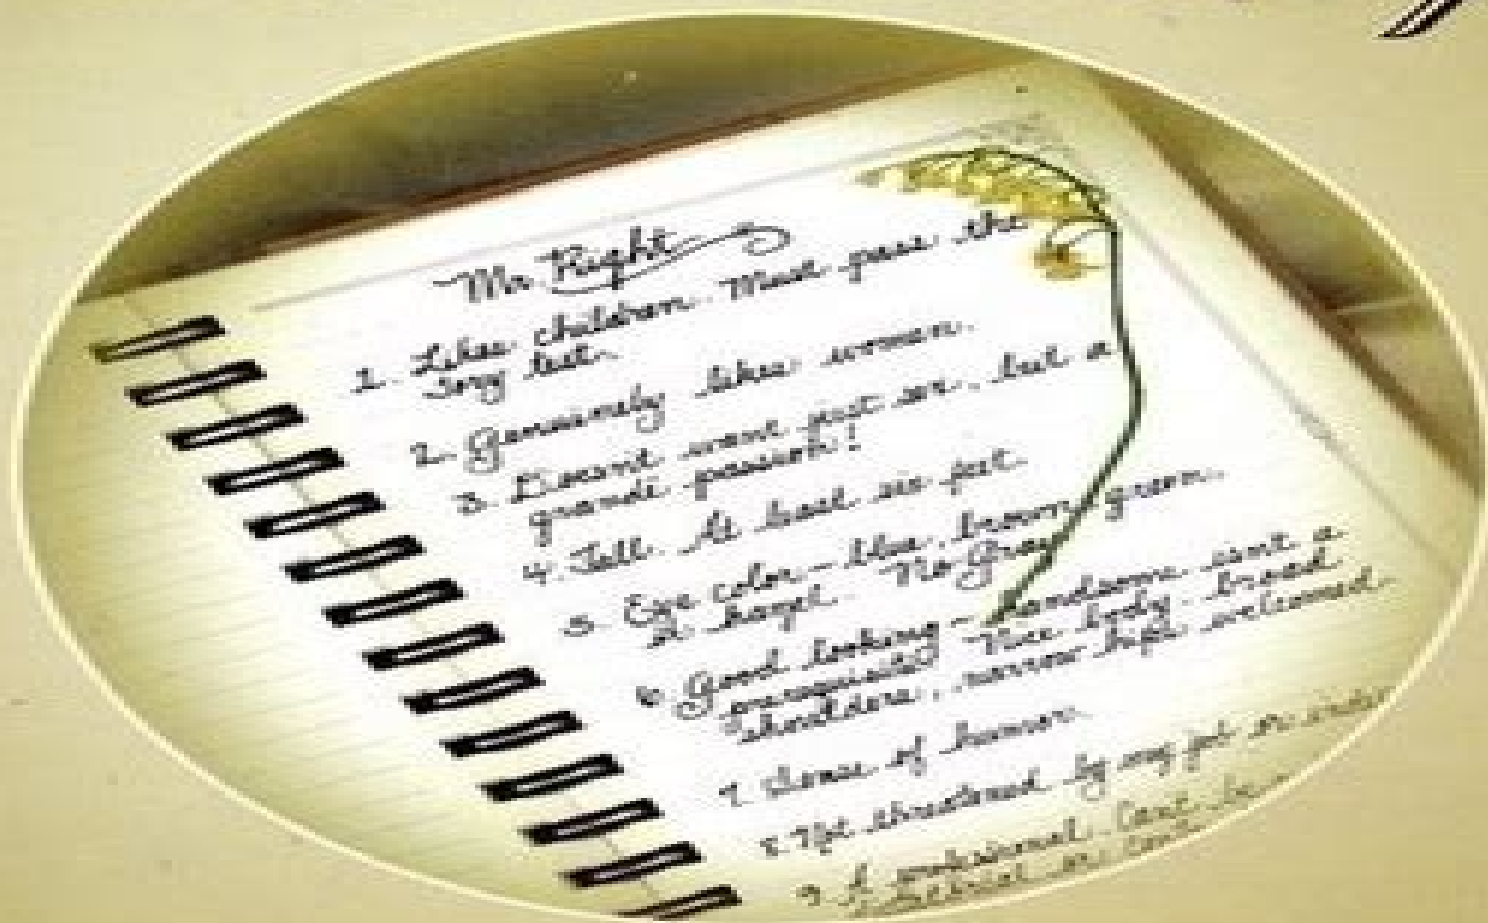 Mr. Right
1. Likes children. Must pass the
test.
2. Genuinely likes women.
3. Doesn't want just sex, but a
grande passion!
4. Tall. At least six feet.
5. Eye color - blue, brown, green
or hazel. No Gray
6. Good looking - handsome isn't a
prerequisite. Nice body, broad
shoulders, narrow hips welcomed.
7. Sense of humor.
8. Not threatened by my job or
9. A professional. Can't be